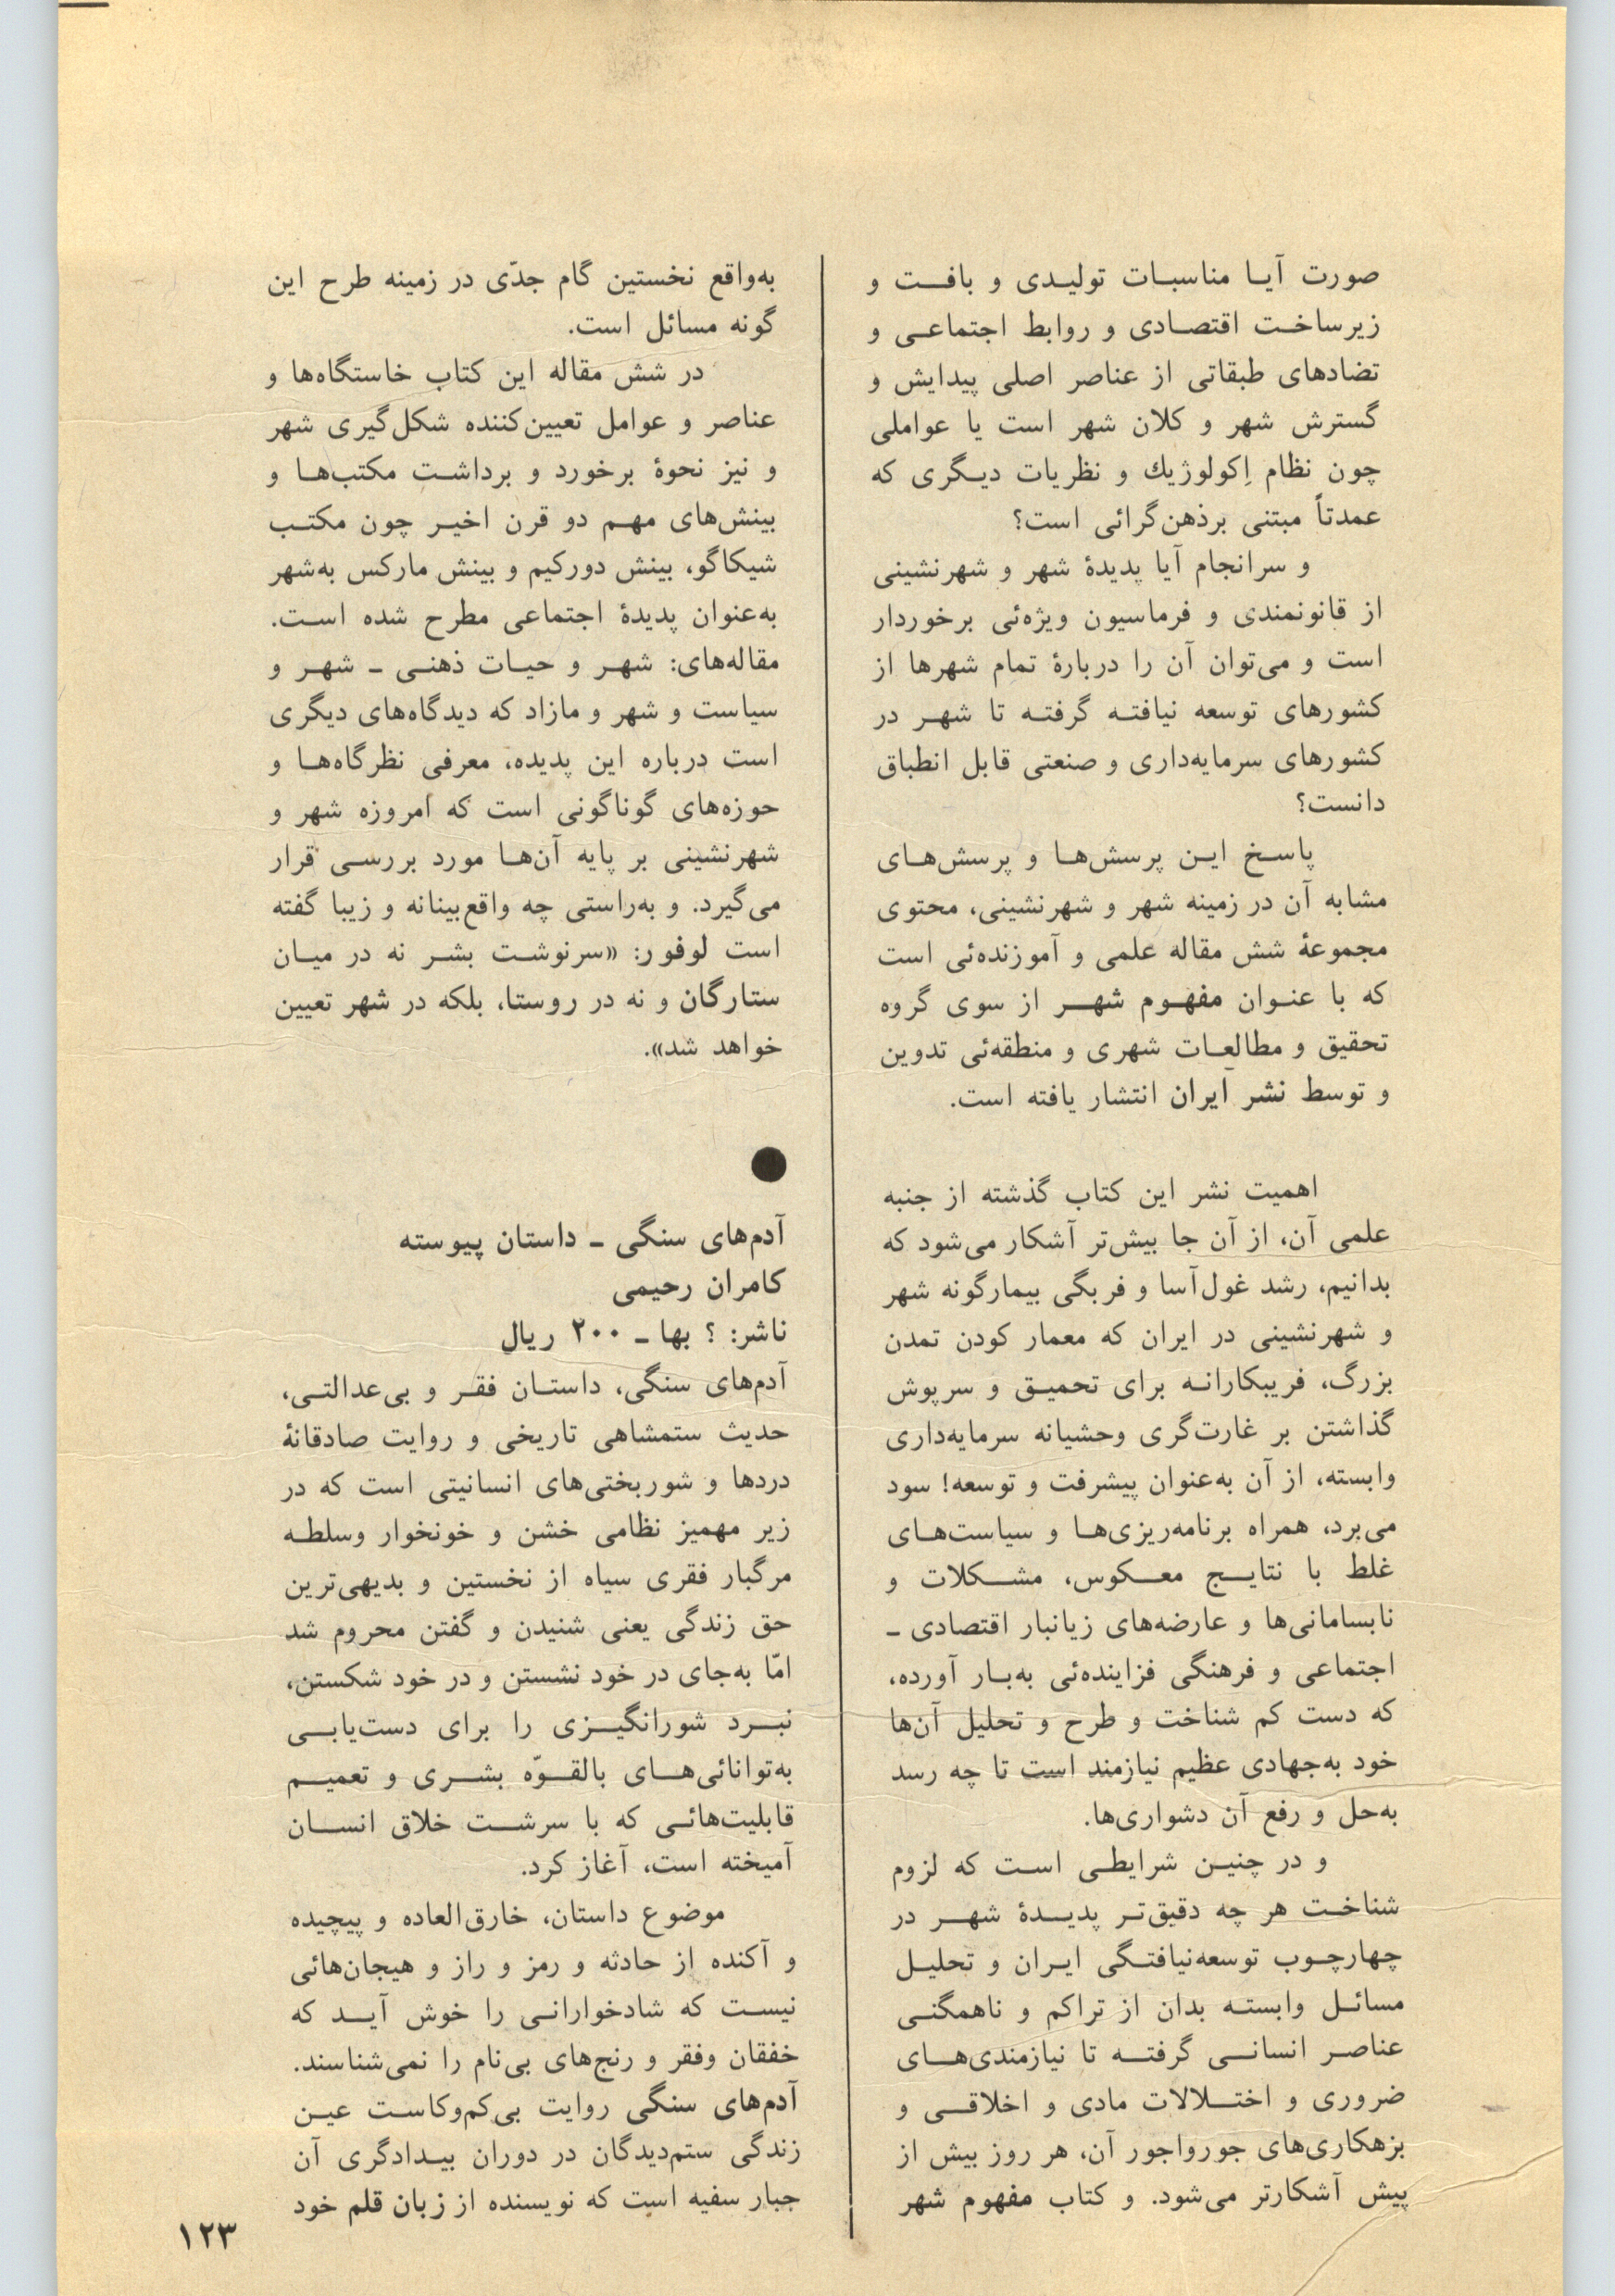 صورت آیا مناسبات تولیدی و بافت و
زیرساخت اقتصادی و روابط اجتماعی و
تضادهای طبقاتی از عناصر اصلی پیدایش و
گسترش شهر و کلان شهر است یا عواملی
چون نظام اِکولوژیك و نظریات دیگری که
عمدتاً مبتنی برذهن‌گرائی است؟
و سرانجام آیا پدیدهٔ شهر و شهرنشینی
از قانونمندی و فرماسیون ویژه‌ئی برخوردار
است و می‌توان آن را دربارهٔ تمام شهرها از
کشورهای توسعه نیافته گرفته تا شهر در
کشورهای سرمایه‌داری و صنعتی قابل انطباق
دانست؟
پاسخ این پرسش‌ها و پرسش‌های
مشابه آن در زمینه شهر و شهرنشینی، محتوی
مجموعهٔ شش مقاله علمی و آموزنده‌ئی است
که با عنوان مفهوم شهر از سوی گروه
تحقیق و مطالعات شهری و منطقه‌ئی تدوین
و توسط نشر ایران انتشار یافته است.
اهمیت نشر این کتاب گذشته از جنبه
علمی آن، از آن جا بیش‌تر آشکار می‌شود که
بدانیم، رشد غول‌آسا و فربگی بیمارگونه شهر
و شهرنشینی در ایران که معمار کودن تمدن
بزرگ، فریبکارانه برای تحمیق و سرپوش
گذاشتن بر غارت‌گری وحشیانه سرمایه‌داری
وابسته، از آن به‌عنوان پیشرفت و توسعه! سود
می‌برد، همراه برنامه‌ریزی‌ها و سیاست‌های
غلط با نتایج معکوس، مشکلات و
نابسامانی‌ها و عارضه‌های زیانبار اقتصادی ـ
اجتماعی و فرهنگی فزاینده‌ئی به‌بار آورده،
که دست کم شناخت و طرح و تحلیل آن‌ها
خود به‌جهادی عظیم نیازمند است تا چه رسد
به‌حل و رفع آن دشواری‌ها.
و در چنین شرایطی است که لزوم
شناخت هر چه دقیق‌تر پدیدهٔ شهر در
چهارچوب توسعه‌نیافتگی ایران و تحلیل
مسائل وابسته بدان از تراکم و ناهمگنی
عناصر انسانی گرفته تا نیازمندی‌های
ضروری و اختلالات مادی و اخلاقی و
بزهکاری‌های جورواجور آن، هر روز بیش از
پیش آشکارتر می‌شود. و کتاب مفهوم شهر
به‌واقع نخستین گام جدّی در زمینه طرح این
گونه مسائل است.
در شش مقاله این کتاب خاستگاه‌ها و
عناصر و عوامل تعیین‌کننده شکل‌گیری شهر
و نیز نحوهٔ برخورد و برداشت مکتب‌ها و
بینش‌های مهم دو قرن اخیر چون مکتب
شیکاگو، بینش دورکیم و بینش مارکس به‌شهر
به‌عنوان پدیدهٔ اجتماعی مطرح شده است.
مقاله‌های: شهر و حیات ذهنی ـ شهر و
سیاست و شهر و مازاد که دیدگاه‌های دیگری
است درباره این پدیده، معرفی نظرگاه‌ها و
حوزه‌های گوناگونی است که امروزه شهر و
شهرنشینی بر پایه آن‌ها مورد بررسی قرار
می‌گیرد. و به‌راستی چه واقع‌بینانه و زیبا گفته
است لوفور: «سرنوشت بشر نه در میان
ستارگان و نه در روستا، بلکه در شهر تعیین
خواهد شد».
●
آدم‌های سنگی ـ داستان پیوسته
کامران رحیمی
ناشر: ؟ بها ـ ۲۰۰ ریال
آدم‌های سنگی، داستان فقر و بی‌عدالتی،
حدیث ستمشاهی تاریخی و روایت صادقانهٔ
دردها و شوربختی‌های انسانیتی است که در
زیر مهمیز نظامی خشن و خونخوار وسلطه
مرگبار فقری سیاه از نخستین و بدیهی‌ترین
حق زندگی یعنی شنیدن و گفتن محروم شد
امّا به‌جای در خود نشستن و در خود شکستن،
نبرد شورانگیزی را برای دست‌یابی
به‌توانائی‌های بالقوّه بشری و تعمیم
قابلیت‌هائی که با سرشت خلاق انسان
آمیخته است، آغاز کرد.
موضوع داستان، خارق‌العاده و پیچیده
و آکنده از حادثه و رمز و راز و هیجان‌هائی
نیست که شادخوارانی را خوش آید که
خفقان وفقر و رنج‌های بی‌نام را نمی‌شناسند.
آدم‌های سنگی روایت بی‌کم‌وکاست عین
زندگی ستم‌دیدگان در دوران بیدادگری آن
جبار سفیه است که نویسنده از زبان قلم خود
۱۲۳